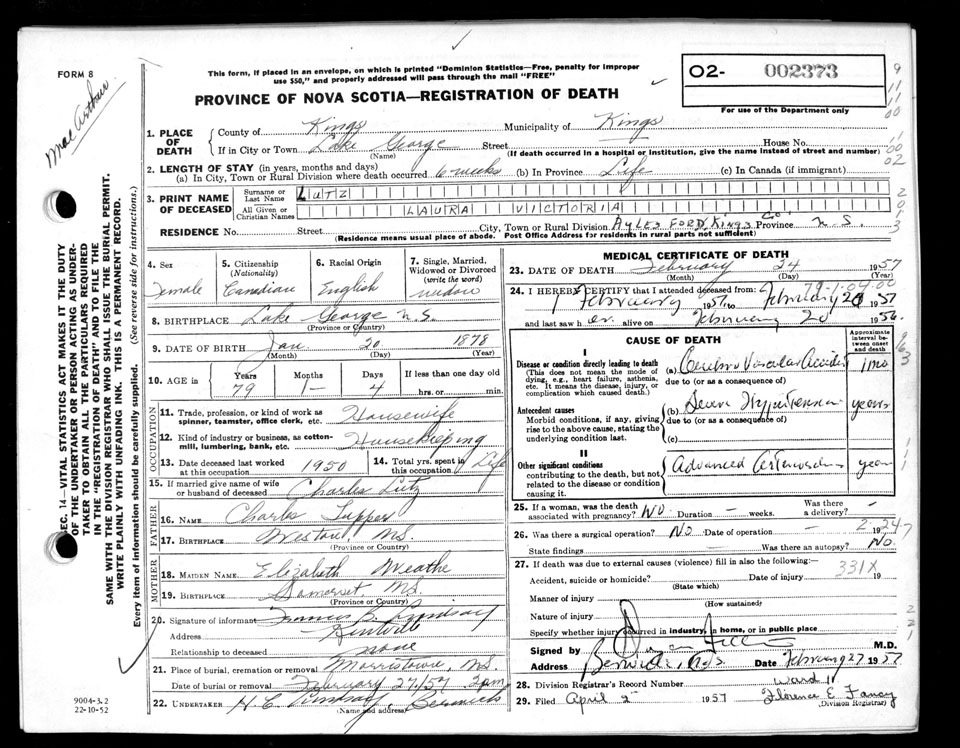 FORM 8
Mac Arthur
This form, if placed in an envelope, on which is printed "Dominion Statistics—Free, penalty for improper
use $50," and properly addressed will pass through the mail "FREE"
PROVINCE OF NOVA SCOTIA—REGISTRATION OF DEATH
O2- 002373
For use of the Department only
1. PLACE OF DEATH
County of Kings Municipality of Kings
If in City or Town Lake George Street House No.
(Name) (If death occurred in a hospital or institution, give the name instead of street and number)
2. LENGTH OF STAY (in years, months and days)
(a) In City, Town or Rural Division where death occurred 6 weeks (b) In Province Life (c) In Canada (if immigrant)
3. PRINT NAME OF DECEASED
Surname or Last Name LUTZ
All Given or Christian Names LAURA VICTORIA
RESIDENCE No. Street City, Town or Rural Division AYLESFORD, KINGS Co. Province N.S.
(Residence means usual place of abode. Post Office Address for residents in rural parts not sufficient)
SEC. 14—VITAL STATISTICS ACT MAKES IT THE DUTY
OF THE UNDERTAKER OR PERSON ACTING AS UNDER-
TAKER TO OBTAIN ALL THE PARTICULARS REQUIRED
IN THE "REGISTRATION OF DEATH" AND TO FILE THE
SAME WITH THE DIVISION REGISTRAR WHO SHALL ISSUE THE BURIAL PERMIT.
WRITE PLAINLY WITH UNFADING INK. THIS IS A PERMANENT RECORD.
Every item of information should be carefully supplied. (See reverse side for instructions.)
4. Sex Female
5. Citizenship (Nationality) Canadian
6. Racial Origin English
7. Single, Married, Widowed or Divorced (write the word) widow
8. BIRTHPLACE Lake George N.S.
(Province or Country)
9. DATE OF BIRTH Jan 20 1878
(Month) (Day) (Year)
10. AGE in Years Months Days If less than one day old
79 1 4 hrs. or min.
OCCUPATION
11. Trade, profession, or kind of work as spinner, teamster, office clerk, etc. Housewife
12. Kind of industry or business, as cotton-mill, lumbering, bank, etc. Housekeeping
13. Date deceased last worked at this occupation 1950 14. Total yrs. spent in this occupation Life
15. If married give name of wife or husband of deceased Charles Lutz
FATHER
16. Name Charles Tupper
17. Birthplace Weston N.S.
(Province or Country)
MOTHER
18. Maiden Name Elizabeth
19. Birthplace Somerset, N.S.
(Province or Country)
20. Signature of informant Francis B. Lyndsay
Address
Relationship to deceased none
21. Place of burial, cremation or removal Morristown, N.S.
Date of burial or removal February 27/57 2 pm
22. Undertaker H. C. Berwick
(Name and address)
9004-3.2
22-10-52
MEDICAL CERTIFICATE OF DEATH
23. DATE OF DEATH February 24 1957
(Month) (Day) (Year)
24. I HEREBY CERTIFY that I attended deceased from
February 1957 to February 20 1957
and last saw her alive on February 20 1956.
CAUSE OF DEATH
Approximate interval between onset and death
I
Disease or condition directly leading to death
(This does not mean the mode of dying, e.g., heart failure, asthenia, etc. It means the disease, injury, or complication which caused death.)
(a) Cerebro Vascular Accident 1 mo
due to (or as a consequence of)
Antecedent causes
Morbid conditions, if any, giving rise to the above cause, stating the underlying condition last.
(b) Severe Hypertension years
due to (or as a consequence of)
(c)
II
Other significant conditions
contributing to the death, but not related to the disease or condition causing it.
Advanced years
25. If a woman, was the death associated with pregnancy? NO Duration — weeks. Was there a delivery? -
26. Was there a surgical operation? NO Date of operation — 19
State findings — Was there an autopsy? NO.
27. If death was due to external causes (violence) fill in also the following: 331X
Accident, suicide or homicide? Date of injury 19
(State which)
Manner of injury
(How sustained)
Nature of injury
Specify whether injury occurred in industry, in home, or in public place
Signed by M.D.
Address Berwick, N.S. Date February 27 1957
28. Division Registrar's Record Number Ward 11
29. Filed April 2 1957 Florence E.
(Division Registrar)